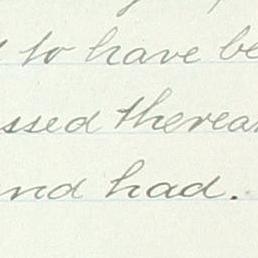 to have be
ssed therea
nd had.